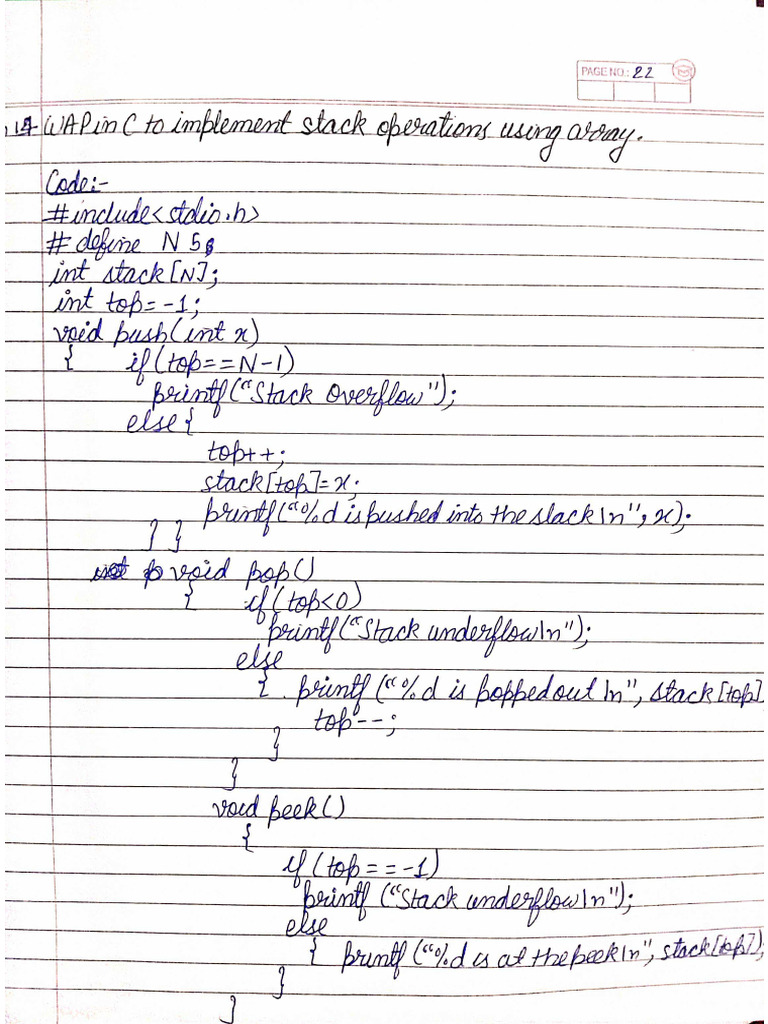 PAGE NO.: 22
WAP in C to implement stack operations using array.
Code:-
#include<stdio.h>
# define N 5;
int stack[N];
int top=-1;
void push(int x)
{ if(top==N-1)
printf("Stack Overflow");
else{
top++;
stack[top]=x;
printf("%d is pushed into the stack\n", x);
} }
void pop()
{ if(top<0)
printf("Stack underflow\n");
else
{ printf("%d is popped out \n", stack[top]
top--;
}
}
void peek()
{
if(top==-1)
printf("Stack underflow\n");
else
{ printf("%d is at the peek\n", stack[top]);
}
}